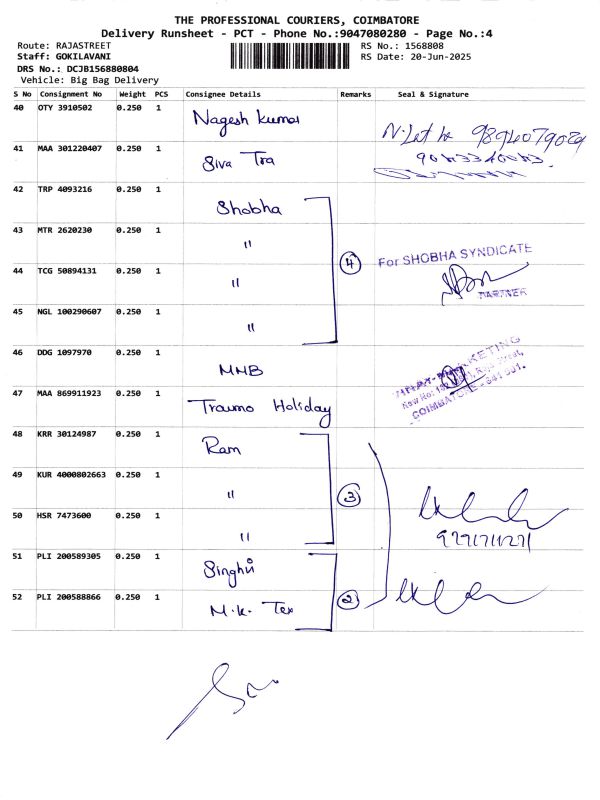 THE PROFESSIONAL COURIERS, COIMBATORE
Delivery Runsheet - PCT - Phone No.:9047080280 - Page No.:4
Route: RAJASTREET
RS No.: 1568808
Staff: GOKILAVANI
RS Date: 20-Jun-2025
DRS No.: DCJB156880804
Vehicle: Big Bag Delivery
S No Consignment No Weight PCS Consignee Details Remarks Seal & Signature
40 OTY 3910502 0.250 1 Nagesh Kumar
9894079029
41 MAA 301220407 0.250 1 Siva Tra
42 TRP 4093216 0.250 1 Shobha
43 MTR 2620230 0.250 1 "
4 For SHOBHA SYNDICATE
44 TCG 50894131 0.250 1 "
PARTNER
45 NGL 100290607 0.250 1 "
46 DDG 1097970 0.250 1 MNB
47 MAA 869911923 0.250 1 Traumo Holiday
COIMBATORE
48 KRR 30124987 0.250 1 Ram
49 KUR 4000802663 0.250 1 "
3
50 HSR 7473600 0.250 1 "
51 PLI 200589305 0.250 1 Singhvi
52 PLI 200588866 0.250 1 M.K. Tex
2